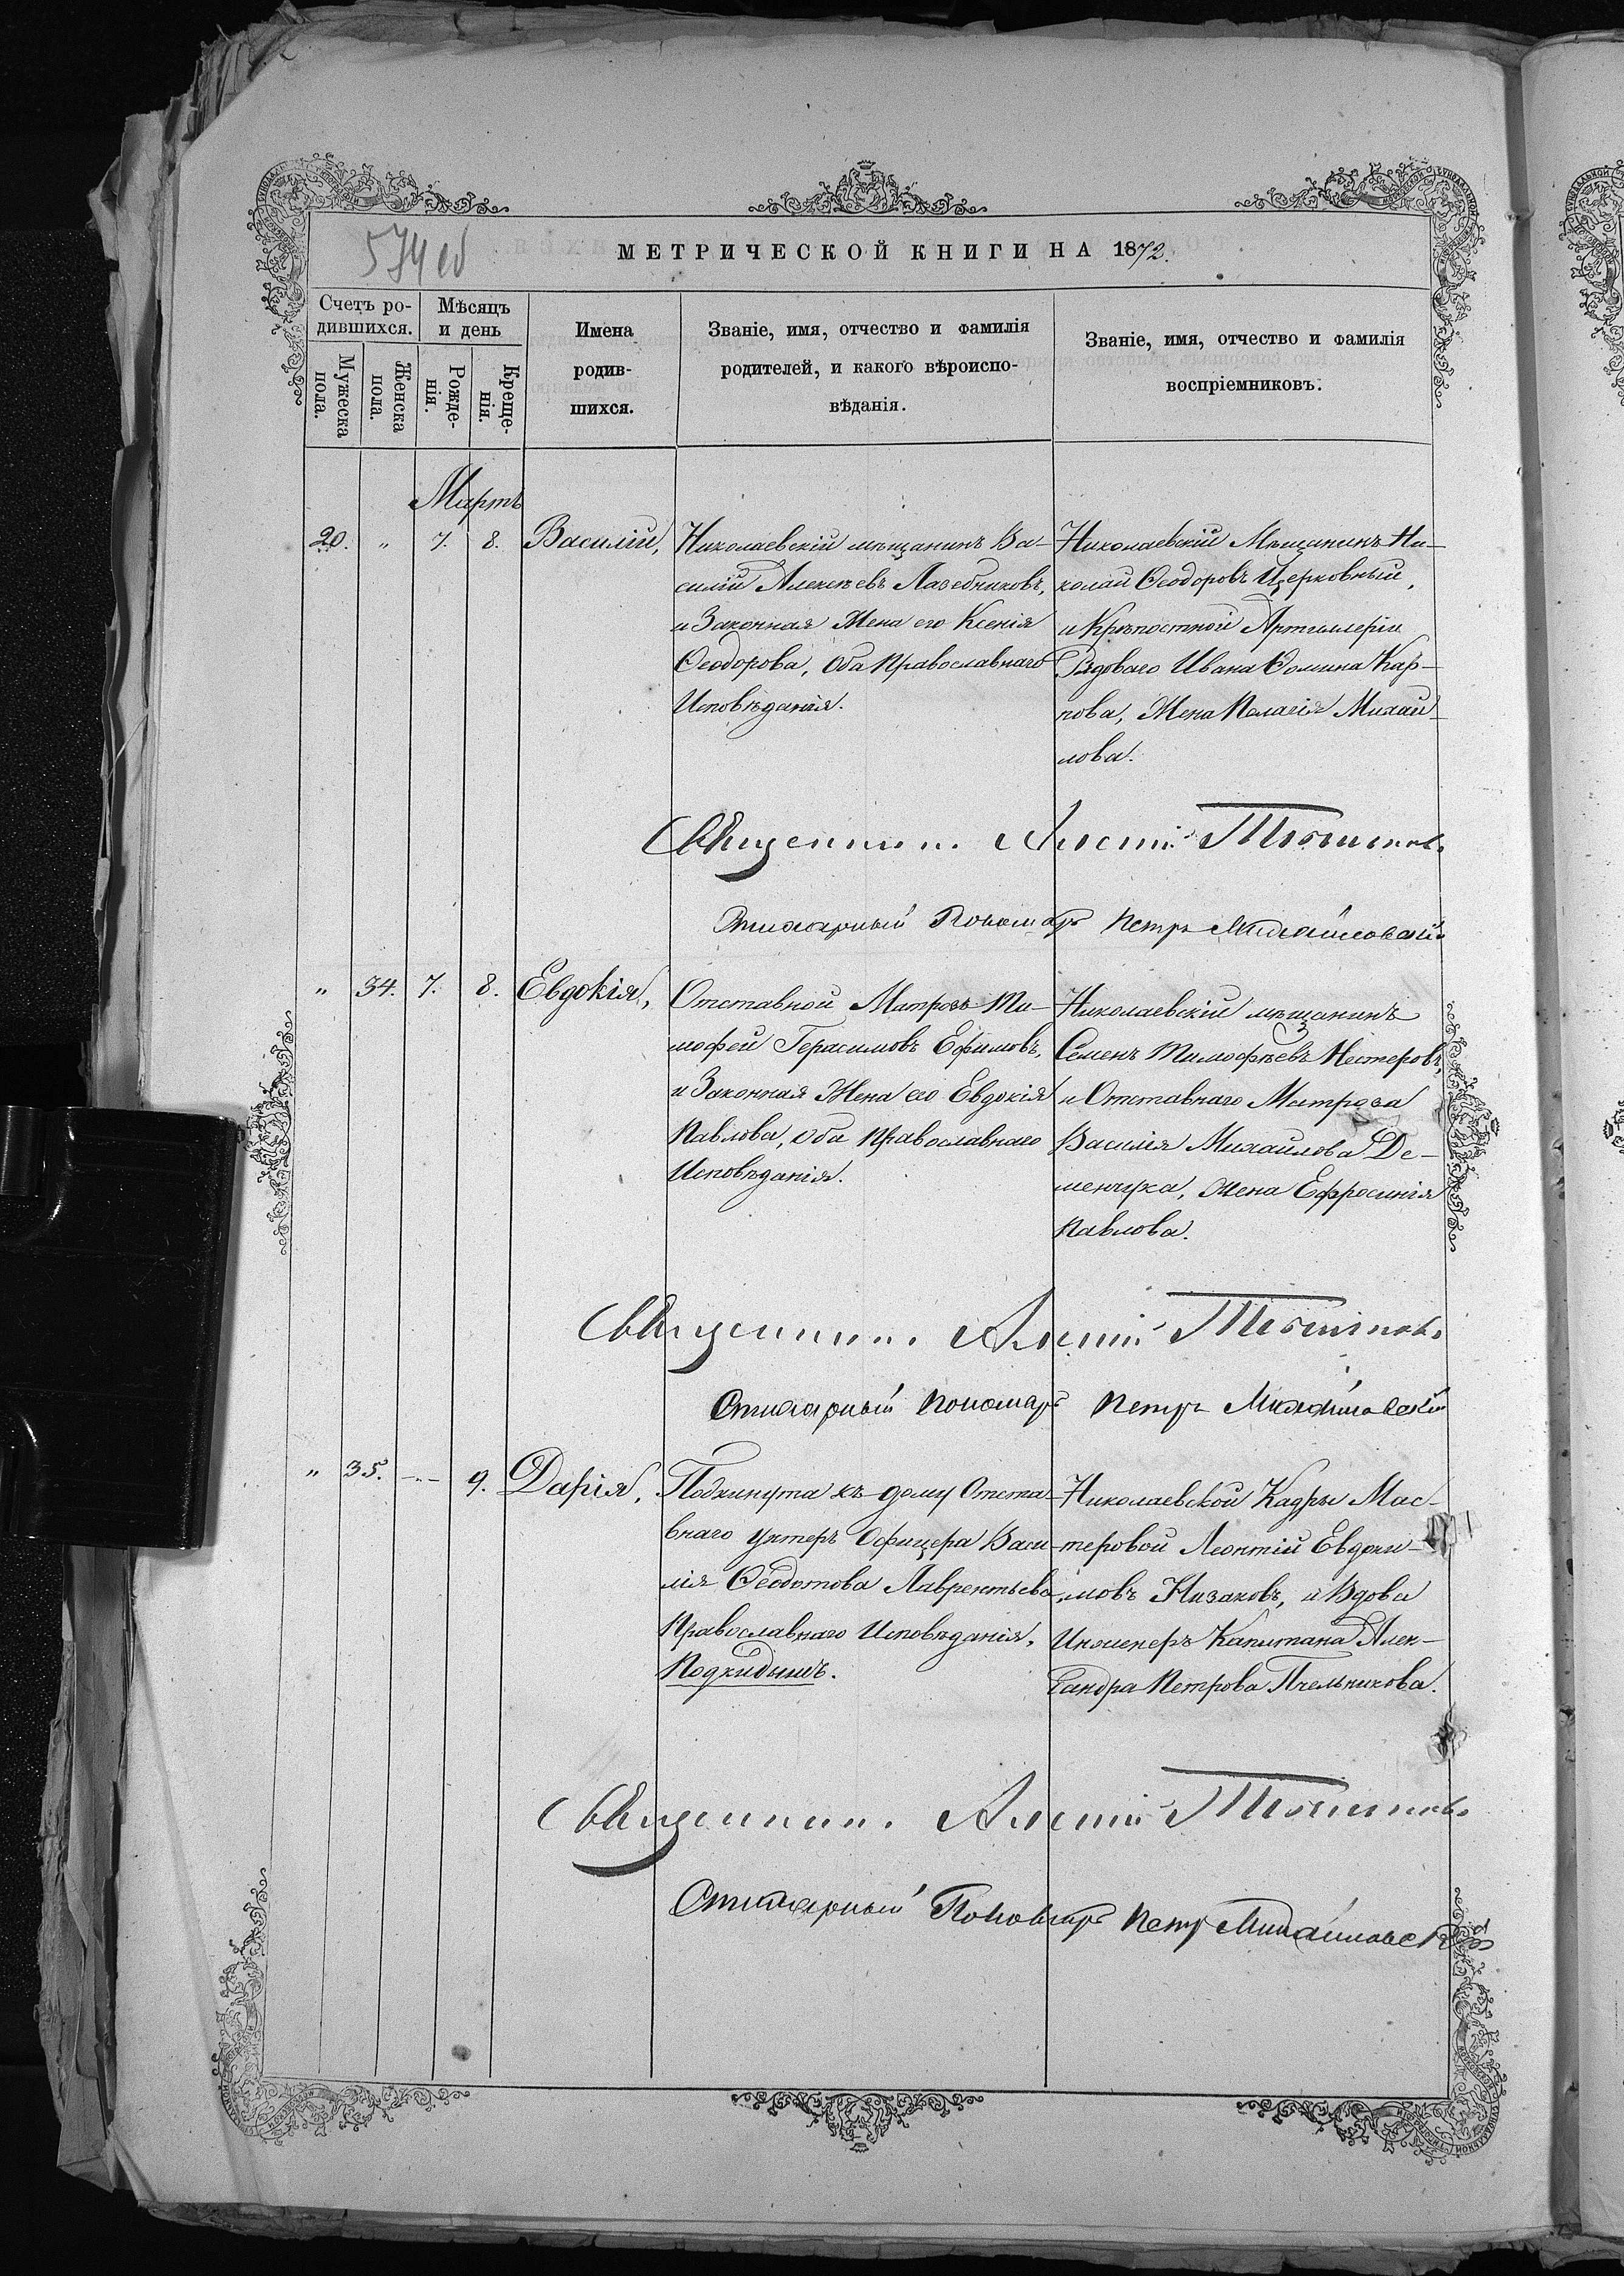 574 об
МЕТРИЧЕСКОЙ КНИГИ НА 1872.
Счетъ ро-
дившихся.
Мѣсяцъ
и день
Мужеска
пола.
Женска
пола.
Рожде-
нія.
Креще-
нія.
Имена
родив-
шихся.
Званіе, имя, отчество и фамилія
родителей, и какого вѣроиспо-
вѣданія.
Званіе, имя, отчество и фамилія
воспріемниковъ.
Мартъ
20. " 7. 8. Василій,
Николаевскій мѣщанинъ Ва-
силій Алексѣевъ Лазебниковъ,
и Законная Жена его Ксенія
Ѳеодорова, Оба Православнаго
Исповѣданія.
Николаевскій Мѣщанинъ Ни-
колай Ѳеодоровъ Церковный,
и Крѣпостной Артиллеріи
Рядоваго Ивана Ѳомина Кар-
пова, Жена Пелагія Михай-
лова.
Священникъ
Стихарный Пономарь Петръ Михайловскій
" 34. 7. 8. Евдокія,
Отставной Матрозъ Ти-
мофей Герасимовъ Ефимовъ,
и Законная Жена его Евдокія
Павлова, оба Православнаго
Исповѣданія.
Николаевскій мѣщанинъ
Семенъ Тимофѣевъ Нестеровъ,
и Отставнаго Матроза
Василія Михайлова Де-
менчука, жена Ефросинія
Павлова.
Священникъ
Стихарный Пономарь Петръ Михайловскій
" 35. -"- 9. Дарія,
Подкинута къ дому Отста-
внаго Унтеръ Офицера Васи-
лія Ѳеодотова Лаврентьева,
Православнаго Исповѣданія,
Подкидышъ.
Николаевской Кадры Мас-
теровой Леонтій Евдоки-
мовъ Низаковъ, и Вдова
Инженеръ Капитана Алек-
сандра Петрова Пчельникова.
Священникъ
Стихарный Пономарь Петръ Михайловскій